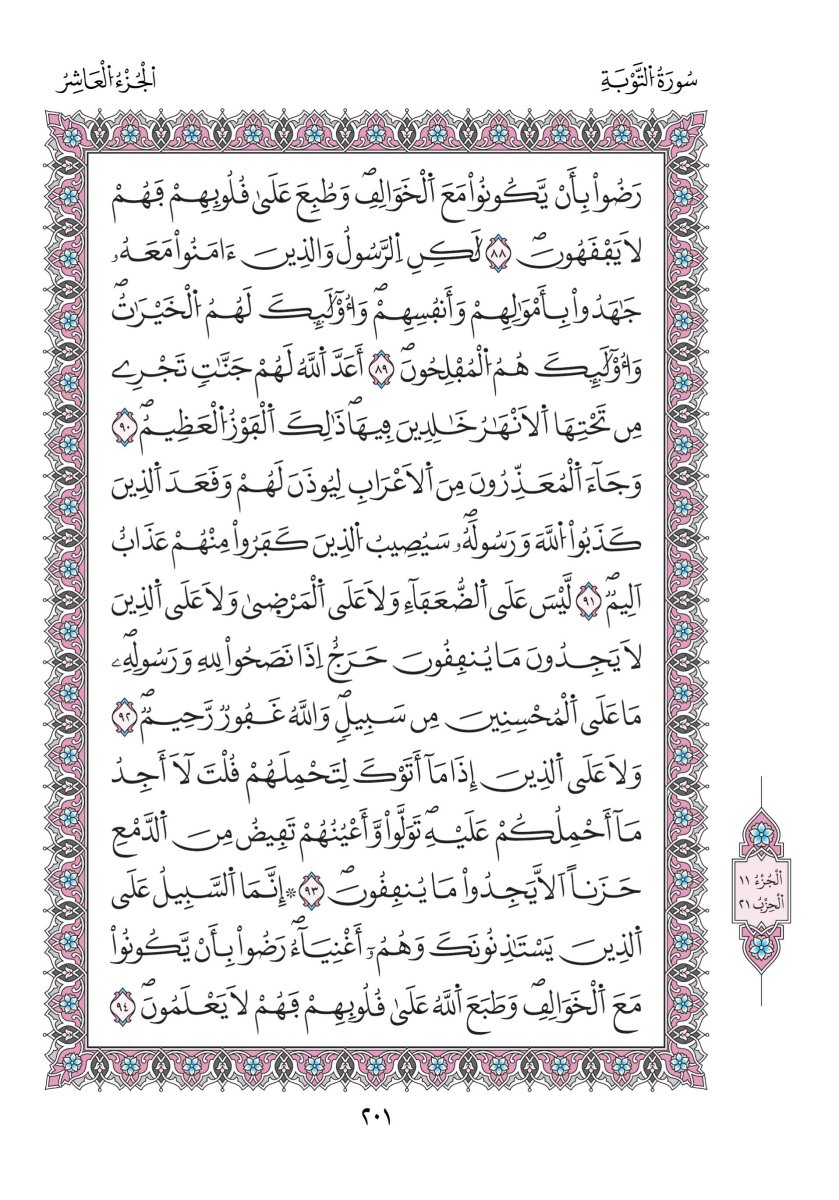 سُورَةُ اُ۬لتَّوْبَةِ
اَ۬لْجُزْءُ اُ۬لْعَاشِرُ
رَضُواْ بِأَنْ يَّكُونُواْ مَعَ اَ۬لْخَوَالِفِۖ وَطُبِعَ عَلَىٰ قُلُوبِهِمْ فَهُمْ
لَا يَفْقَهُونَۖ ٨٨ لَٰكِنِ اِ۬لرَّسُولُ وَالذِينَ ءَامَنُواْ مَعَهُۥ
جَٰهَدُواْ بِأَمْوَٰلِهِمْ وَأَنفُسِهِمْۖ وَأُوْلَٰٓئِكَ لَهُمُ اُ۬لْخَيْرَٰتُۖ
وَأُوْلَٰٓئِكَ هُمُ اُ۬لْمُفْلِحُونَۖ ٨٩ أَعَدَّ اَ۬للَّهُ لَهُمْ جَنَّٰتٖ تَجْرِے
مِن تَحْتِهَا اَ۬لَانْهَٰرُ خَٰلِدِينَ فِيهَاۖ ذَٰلِكَ اَ۬لْفَوْزُ اُ۬لْعَظِيمُۖ ٩٠
وَجَآءَ اَ۬لْمُعَذِّرُونَ مِنَ اَ۬لَاعْرَابِ لِيُوذَنَ لَهُمْ وَقَعَدَ اَ۬لذِينَ
كَذَبُواْ اُ۬للَّهَ وَرَسُولَهُۥۖ سَيُصِيبُ اُ۬لذِينَ كَفَرُواْ مِنْهُمْ عَذَابٌ
اَلِيمٌۖ ٩١ لَّيْسَ عَلَى اَ۬لضُّعَفَآءِ وَلَا عَلَى اَ۬لْمَرْضِىٰ وَلَا عَلَى اَ۬لذِينَ
لَا يَجِدُونَ مَا يُنفِقُونَ حَرَجٌ اِذَا نَصَحُواْ لِلهِ وَرَسُولِهِۦۖ
مَا عَلَى اَ۬لْمُحْسِنِينَ مِن سَبِيلٖۖ وَاللَّهُ غَفُورٞ رَّحِيمٞۖ ٩٢
وَلَا عَلَى اَ۬لذِينَ إِذَا مَآ أَتَوْكَ لِتَحْمِلَهُمْ قُلْتَ لَآ أَجِدُ
مَآ أَحْمِلُكُمْ عَلَيْهِۖ تَوَلَّواْ وَّأَعْيُنُهُمْ تَفِيضُ مِنَ اَ۬لدَّمْعِ
حَزَناً اَلَّا يَجِدُواْ مَا يُنفِقُونَۖ ٩٣ ۞إِنَّمَا اَ۬لسَّبِيلُ عَلَى
اَ۬لذِينَ يَسْتَٰذِنُونَكَ وَهُمُۥٓ أَغْنِيَآءُۖ رَضُواْ بِأَنْ يَّكُونُواْ
مَعَ اَ۬لْخَوَالِفِۖ وَطَبَعَ اَ۬للَّهُ عَلَىٰ قُلُوبِهِمْ فَهُمْ لَا يَعْلَمُونَۖ ٩٤
اَلْجُزْءُ ١١
اَلْحِزْبُ ٢١
٢٠١